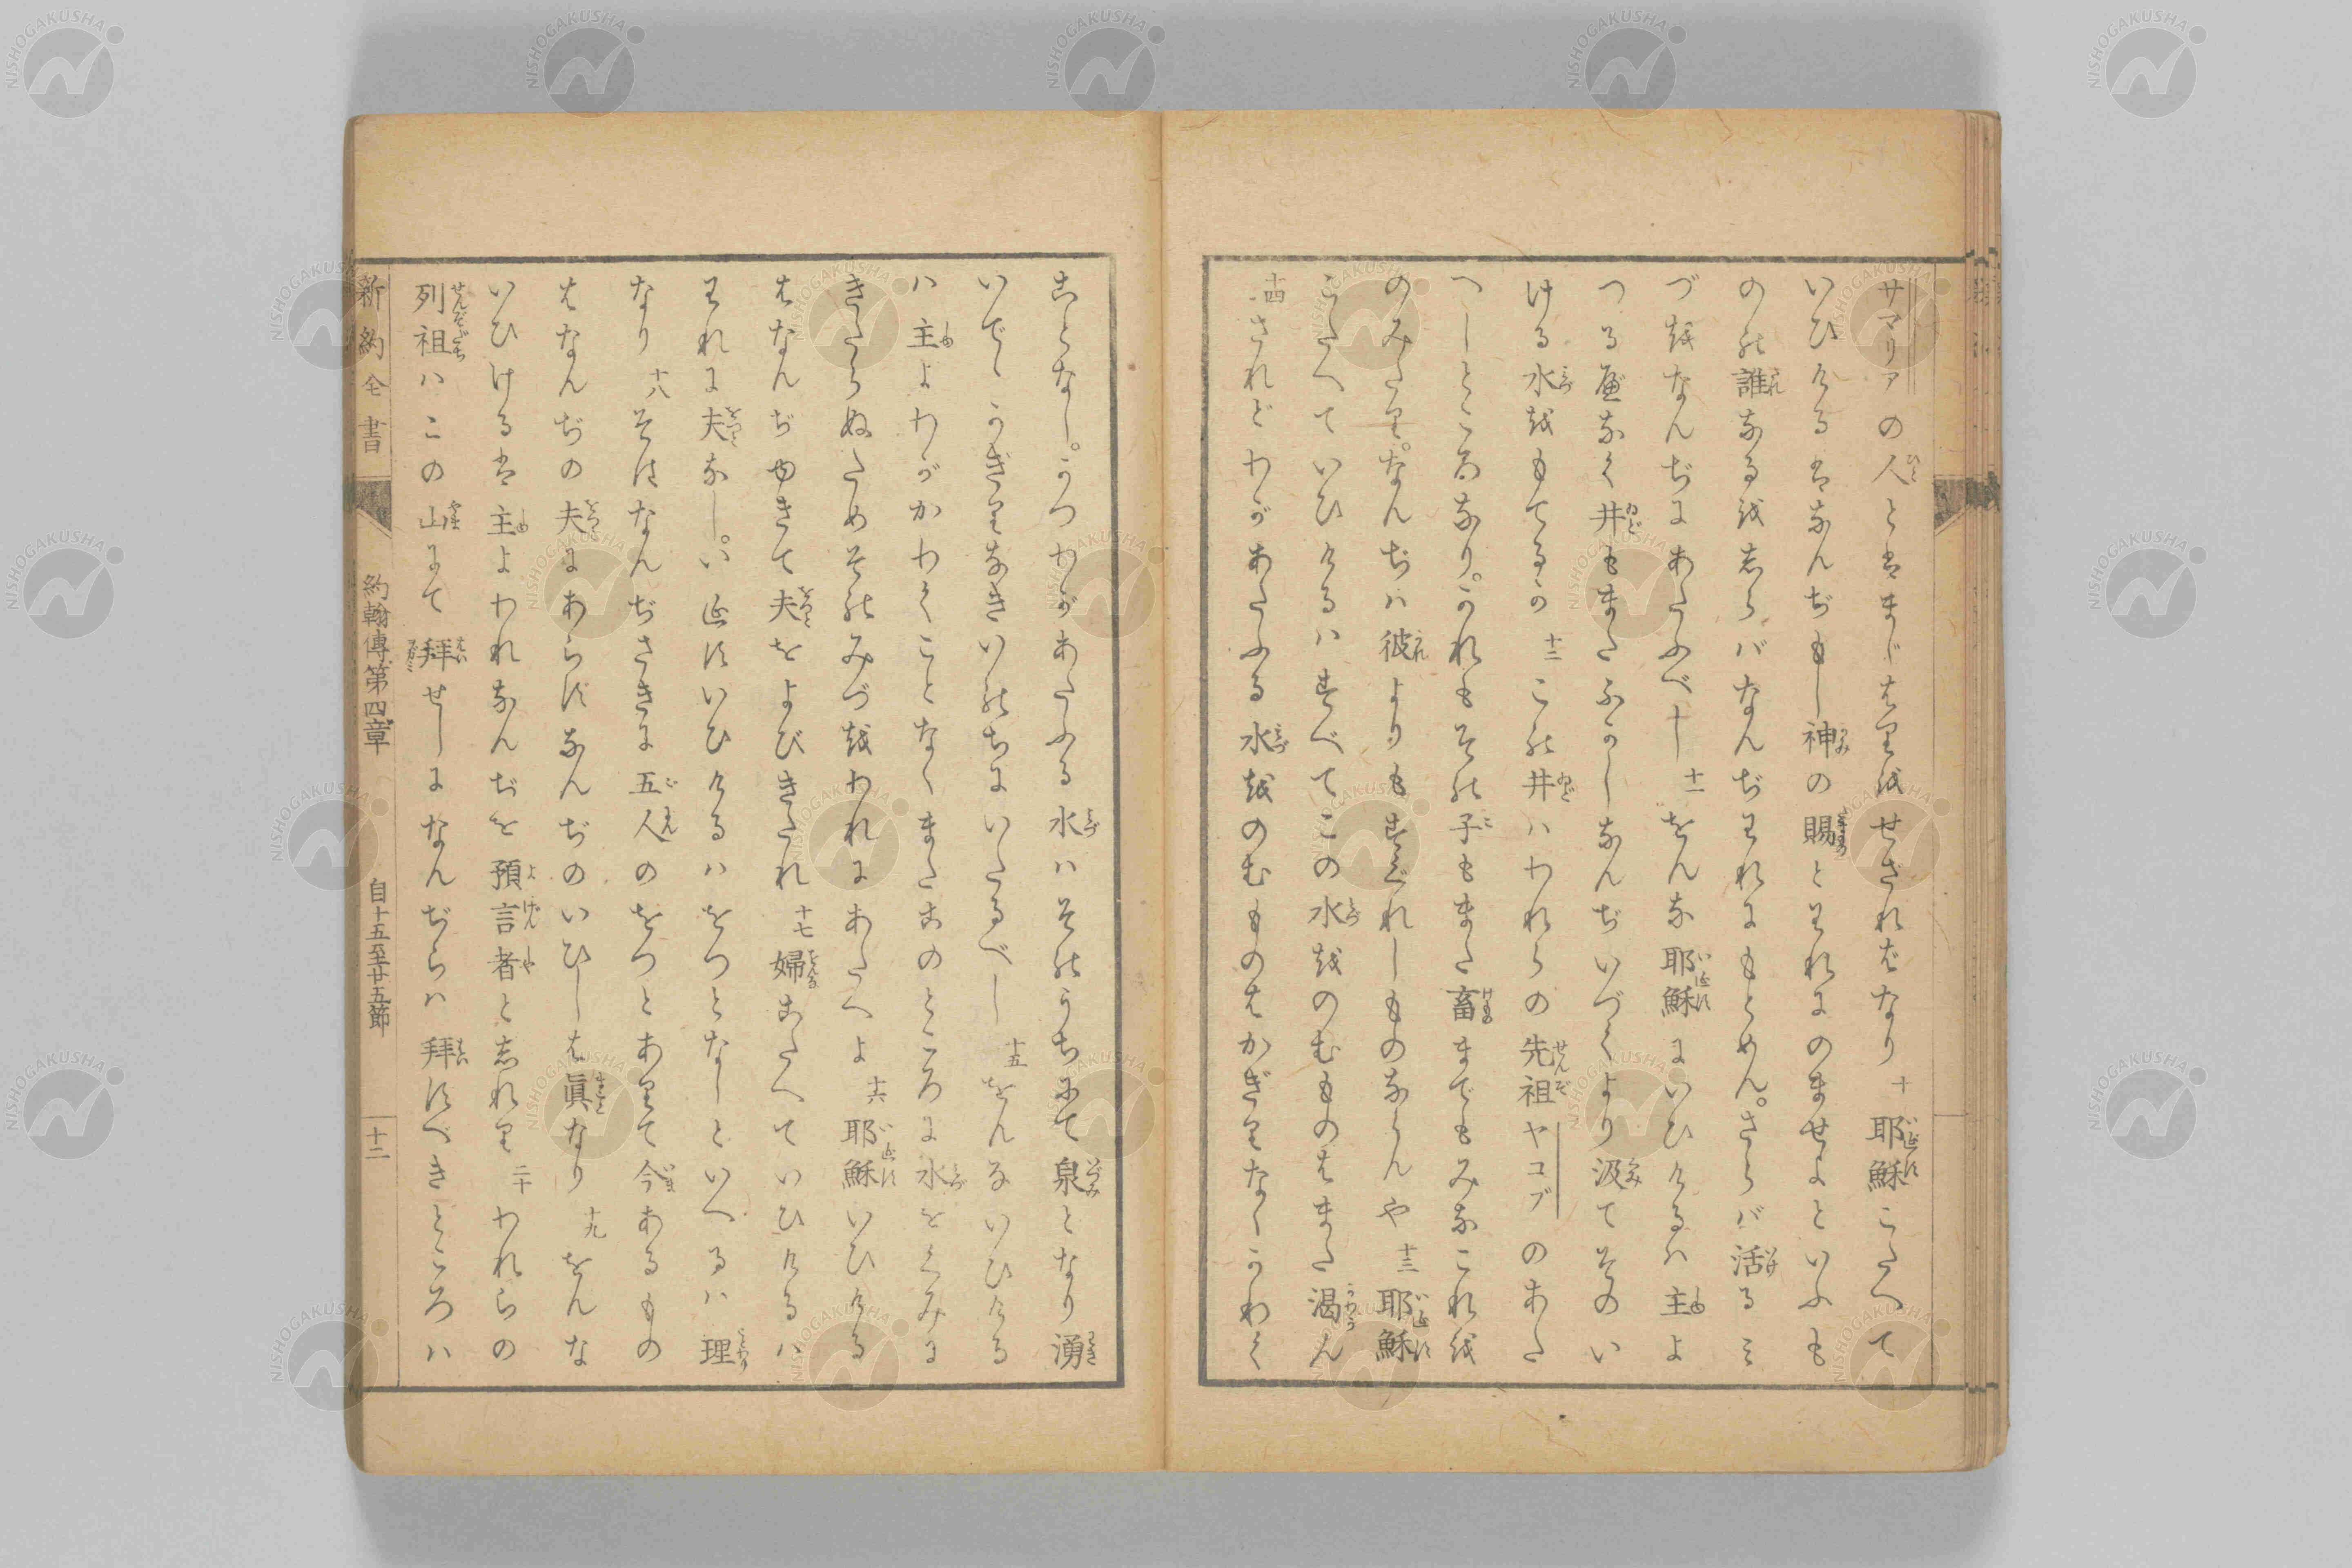 サマリアの人とはまじはりをせざればなり 十 耶穌こたへて
いひけるはなんぢもし神の賜とわれにのませよといふも
のの誰なるをしらバなんぢわれにもとめん。さらバ活るミ
づをなんぢにあたふべし 十一 をんな耶穌にいひけるハ主よ
つる瓶なく井もまたふかしなんぢいづくより汲てそのい
ける水をもてるか 十二 この井ハわれらの先祖ヤコブのあた
へしところなり。かれもその子もまた畜までもみなこれを
のみたり。なんぢハ彼よりもすぐれしものならんや 十三 耶穌
こたへていひけるハすべてこの水をのむものはまた渇ん
十四 されどわがあたふる水をのむものはかぎりなくかわく
ことなし。かつわがあたふる水ハそのうちにて泉となり湧
いでゝかぎりなきいのちにいたるべし 十五 をんないひける
ハ主よわがかわくことなくまたこのところに水をくみに
きたらぬためそのみづをわれにあたへよ 十六 耶穌いひける
はなんぢゆきて夫をよびきたれ 十七 婦こたへていひけるハ
われに夫なし。いゑすいひけるハをつとなしといへるハ理
なり 十八 そはなんぢさきに五人のをつとありて今あるもの
はなんぢの夫にあらずなんぢのいひしは眞なり 十九 をんな
いひけるは主よわれなんぢを預言者としれり 二十 われらの
列祖ハこの山にて拜せしになんぢらハ拜すべきところハ
新約全書 約翰傳第四章 自十五至廿五節 十二
NISHOGAKUSHA